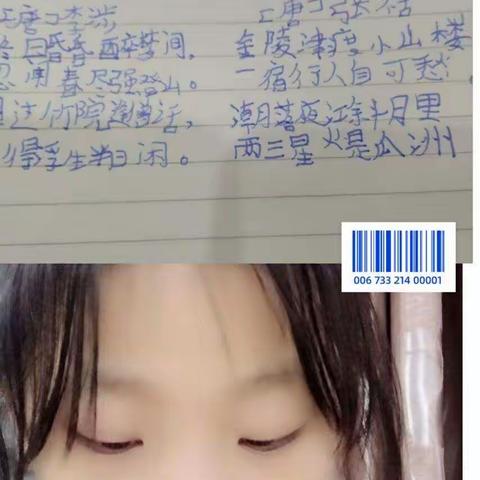 [唐]李涉
终日昏昏醉梦间,
忽闻春尽强登山。
过竹院逢僧话,
得浮生半日闲。
[唐]张祜
金陵津渡小山楼
一宿行人自可愁。
潮落夜江斜月里
两三星火是瓜洲
006 733 214 00001